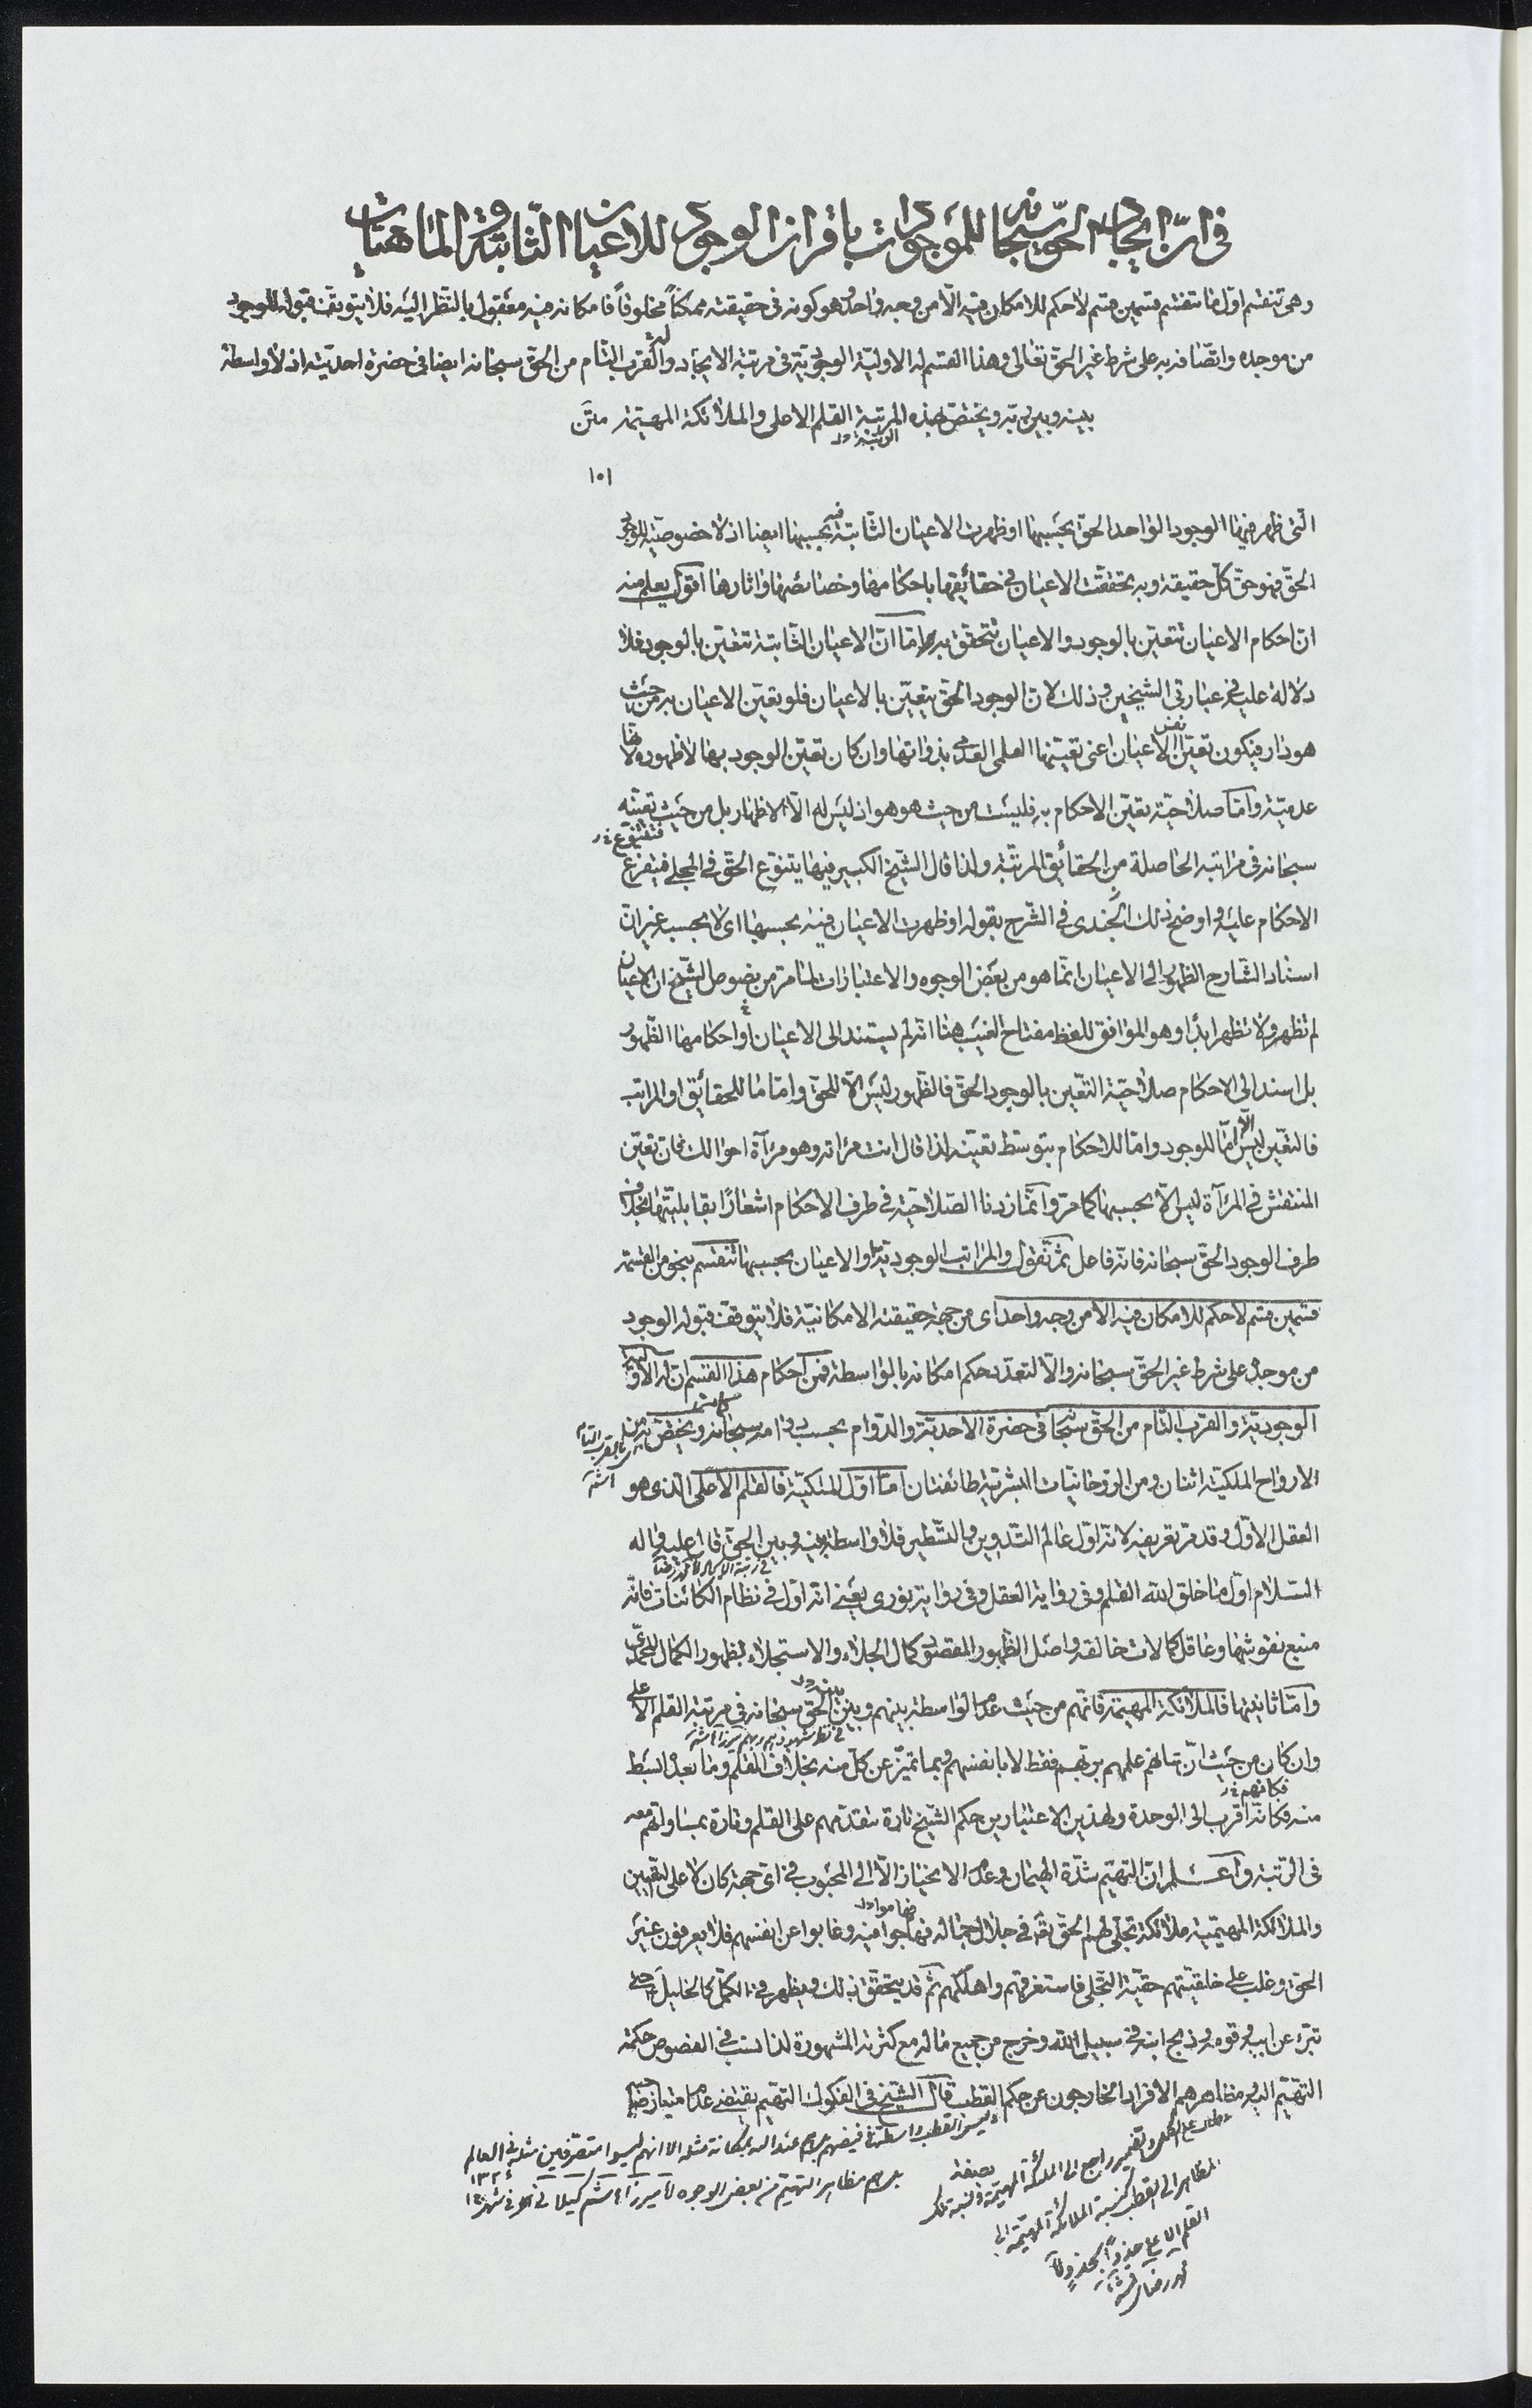 في ان ايجاد الحق سبحانه للموجودات باقران الوجود للاعيان الثابتة والماهيات
وهي تنقسم اول ما تنقسم قسمين قسم لا حكم للامكان فيه الا من وجه واحد هو كونه في حقيقته ممكنا مخلوقا فامكانه فيه معقول بالنظر اليه فلا يتوقف قبوله للوجود
من موجده واتصافه به على شرط غير الحق تعالى وهذا القسم له الاولية الوجودية في مرتبة الايجاد وله القرب التام من الحق سبحانه ايضا في حضرة احديته اذ لا واسطة
بينه وبين ربه ويختص بهذه المرتبة القلم الاعلى والملائكة المهيمة متن
١٥١
التي ظهر فيها الوجود الواحد الحق بحسبها او ظهرت الاعيان الثابتة فيه بحسبها ايضا اذ لا خصوصية للوجود
الحق فهو حق كل حقيقة وبه تحققت الاعيان في حقائقها باحكامها وخصائصها واثارها اقول يعلم منه
ان احكام الاعيان تتعين بالوجود والاعيان تتحقق به اما ان الاعيان الثابتة تتعين بالوجود فلا
دلالة عليه في عبارتي الشيخين وذلك لان الوجود الحق يتعين بالاعيان فلو تعين الاعيان به من حيث
هو دار فيكون تعين الاعيان اعني تعينها العلمي العدمي بذواتها وان كان تعين الوجود بها لا ظهوره لانها
عدمية واما صلاحية تعين الاحكام به فليست من حيث هو هو اذ ليس له الا الاظهار بل من حيث تعينه
سبحانه في مراتبه الحاصلة من الحقائق المرتبة ولذا قال الشيخ الكبير فيها يتنوع الحق في المجلى فيتفرع
الاحكام عليه واوضح ذلك الجندي في الشرح بقوله او ظهرت الاعيان فيه بحسبها اي لا بحسبه غير ان
اسناد الشارح الظهور الى الاعيان انما هو من بعض الوجوه والاعتبارات لما مر من نصوص الشيخ ان الاعيان
لم تظهر ولا تظهر ابدا وهو الموافق للفظ مفتاح الغيب هنا انه لم يستند الى الاعيان واحكامها الظهور
بل اسند الى الاحكام صلاحية التعين بالوجود الحق فالظهور ليس الا للحق واما ما للحقائق او المراتب
فالتعين ليس الا اما للوجود واما للاحكام بتوسط تعينه لذا قال انت مرآته وهو مرآة احوالك فان تعين
المنتقش في المرآة ليس الا بحسبها كما مر وانما زدنا الصلاحية في طرف الاحكام اشعارا بقابليتها بخلاف
طرف الوجود الحق سبحانه فانه فاعل ثم نقول والمراتب الوجودية او الاعيان بحسبها تنقسم بنحو من القسمة
قسمين قسم لا حكم للامكان فيه الا من وجه واحد اي من جهة حقيقته الامكانية فلا يتوقف قبوله الوجود
من موجده على شرط غير الحق سبحانه والا لتعدد حكم امكانه بالواسطة فمن احكام هذا القسم ان له الاولية
الوجودية والقرب التام من الحق سبحانه في حضرة الاحدية والدوام بحسب دوامه سبحانه ويختص به من
الارواح الملكية اثنان ومن الروحانيات البشرية طائفتان اما اول الملكية فالقلم الاعلى الذي هو
العقل الاول وقد مر تعريفه لانه اول عالم التدوين والتسطير فلا واسطة بينه وبين الحق قال عليه واله
السلام اول ما خلق الله القلم وفي رواية العقل وفي رواية نوري يعني انه اول في نظام الكائنات فانه
منبع نقوشها وعاقل كمالات خالقه واصل الظهور المقصود كمال الجلاء والاستجلاء بظهور الكمال المحمدي
واما ثانيتها فالملائكة المهيمة فانهم من حيث عدم الواسطة بينهم وبين الحق سبحانه في مرتبة القلم الاعلى
وان كان من حيث ان شانهم علمهم بربهم فقط لا بانفسهم وبما تميز عن كل منه بخلاف القلم وما بعده ابسط
منه فكانه اقرب الى الوحدة ولهذين الاعتبارين حكم الشيخ تارة بتقدمهم على القلم وتارة بمساواتهم معه
في الرتبة واعلم ان التهيم شدة الهيمان وعدم الانحياز الا الى المحبوب في اي جهة كان لا على التعيين
والملائكة المهيمية ملائكة تجلى لهم الحق تعه في جلال جماله فهاموا فيه وغابوا عن انفسهم فلا يعرفون غير
الحق وغلب على خلقيتهم حقية التجلي فاستغرقهم واهلكهم ثم قد يتحقق ذلك ويظهر في الكمل كالخليل حتى
تبرء عن ابيه وقومه وذبح ابنه في سبيل الله وخرج من جميع ماله مع كثرته المشهورة لذا نسب في الفصوص حكمة
التهيم اليه ومظاهرهم الافراد الخارجون عن حكم القطب قال الشيخ في الفكوك التهيم يقتضي عدم امتياز صاحبه
وليس القطب واسطة في فيضهم عند الله بمكانة مثله الا انهم ليسوا متصرفين مثله في العالم
مظاهر التهيم من بعض الوجوه
راجع الى الملائكة المهيمة ونسبة تلك
المظاهر الى القطب كنسبة الملائكة المهيمة الى
القلم الاعلى